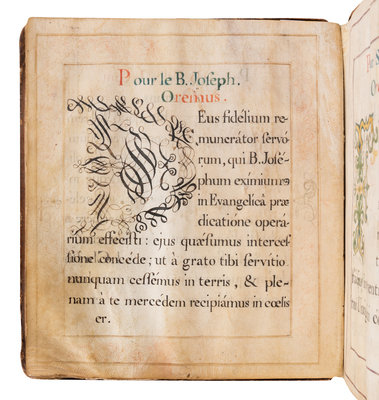 Pour le B. Joseph.
Oremus.
Deus fidélium re-
munerátor servó
rum, qui B. José-
phum eximium
in Evangelicâ præ
dicatione operá-
rium effecisti: ejus quæsumus interces
sióne concéde; ut à grato tibi servitio
nunquam cessémus in terris, & ple-
nam à te mercedem recipiámus in cœlis
er.